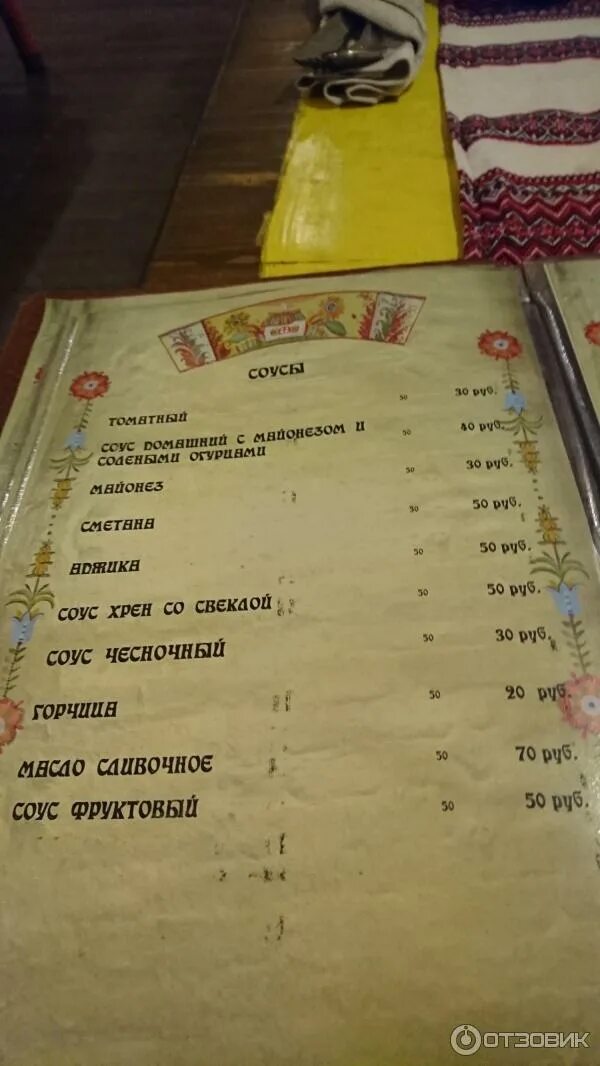 СОУСЫ
ТОМАТНЫЙ 50 30 руб.
СОУС ДОМАШНИЙ С МАЙОНЕЗОМ И 50 40 руб.
СОЛЕНЫМИ ОГУРЦАМИ
МАЙОНЕЗ 50 30 руб.
СМЕТАНА 50 50 руб.
АДЖИКА 50 50 руб.
СОУС ХРЕН СО СВЕКЛОЙ 50 50 руб.
СОУС ЧЕСНОЧНЫЙ 50 30 руб.
ГОРЧИЦА 50 20 руб.
МАСЛО СЛИВОЧНОЕ 50 70 руб.
СОУС ФРУКТОВЫЙ 50 50 руб.
ОТЗОВИК